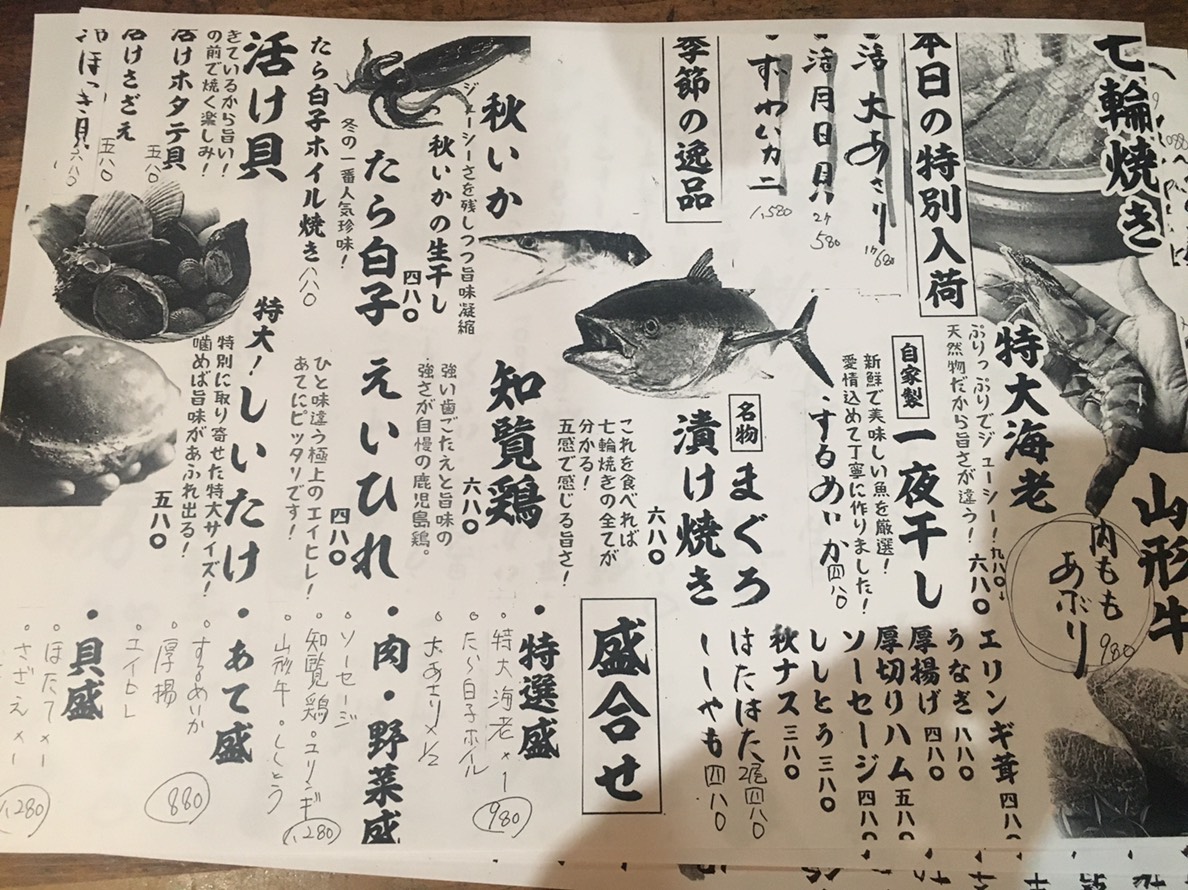 七輪焼き
本日の特別入荷
活大あさり
1ヶ680
活月日貝
2ケ
580
ずわいカニ
1,580
季節の逸品
特大海老
ぷりっぷりでジューシー!
天然物だから旨さが違う!
九八〇
六八〇
山形牛
内もも
あぶり
980
自家製
一夜干し
新鮮で美味しい魚を厳選!
愛情込めて丁寧に作りました!
するめいか 四八〇
名物
まぐろ
漬け焼き
六八〇
これを食べれば
七輪焼きの全てが
分かる!
五感で感じる旨さ!
エリンギ茸 四八〇
うなぎ 八八〇
厚揚げ 四八〇
厚切りハム 五八〇
ソーセージ 四八〇
ししとう 三八〇
秋ナス 三八〇
はたはた 2尾 四八〇
ししゃも 四八〇
秋いか
ジューシーさを残しつつ旨味凝縮
秋いかの生干し
四八〇
たら白子
冬の一番人気珍味!
たら白子ホイル焼き 八八〇
活け貝
きているから旨い!
の前で焼く楽しみ!
活けホタテ貝
五八〇
活けさざえ
五八〇
ほっき貝
六八〇
知覧鶏
六八〇
強い歯ごたえと旨味の
強さが自慢の鹿児島鶏。
えいひれ
四八〇
ひと味違う極上のエイヒレ!
あてにピッタリです!
特大!しいたけ
特別に取り寄せた特大サイズ!
噛めば旨味があふれ出る!
五八〇
盛合せ
・特選盛
・特大海老×1
・たら白子ホイル
・大あさり×1/2
980
・肉・野菜盛
・ソーセージ
・知覧鶏・エリンギ
・山形牛・ししとう
1,280
・あて盛
・するめいか
・厚揚
・エイヒレ
880
・貝盛
・ほたて×1
・さざえ×1
1,280